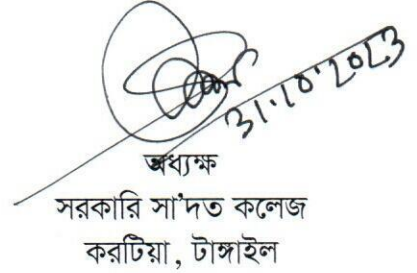 31.10.2023
অধ্যক্ষ
সরকারি সা'দত কলেজ
করটিয়া, টাঙ্গাইল